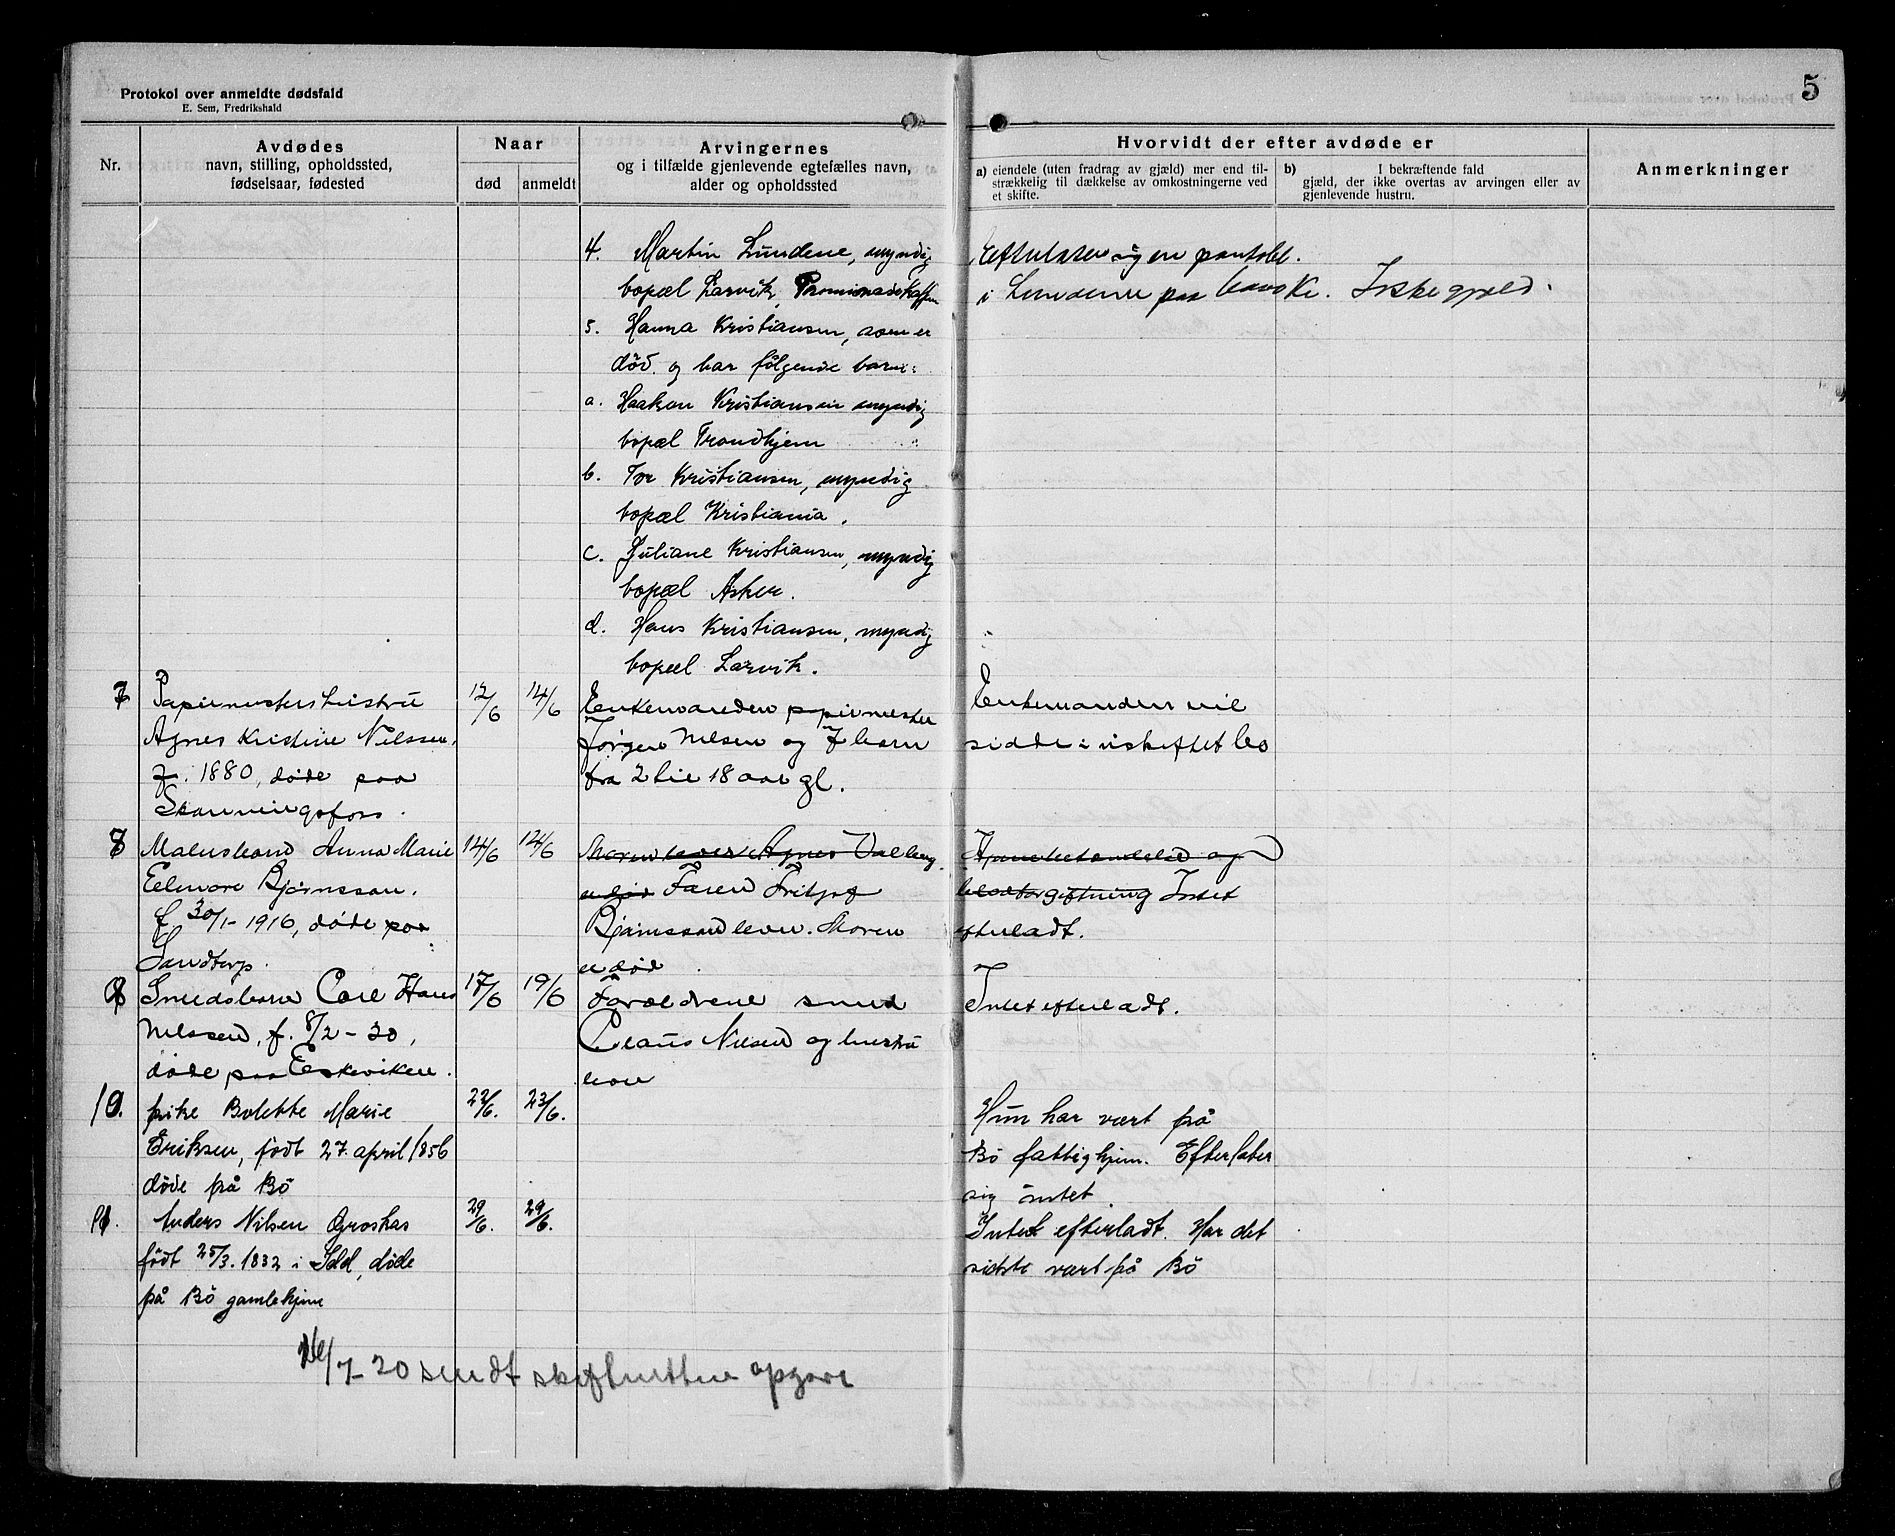 5
Protokol over anmeldte dødsfald
E. Sem, Fredrikshald
Nr.
Avdødes
navn, stilling, opholdssted,
fødselsaar, fødested
Naar
død
anmeldt
Arvingernes
og i tilfælde gjenlevende egtefælles navn,
alder og opholdssted
Hvorvidt der efter avdøde er
a) eiendele (uten fradrag av gjæld) mer end til-
strækkelig til dækkelse av omkostningerne ved
et skifte.
b) I bekræftende fald
gjæld, der ikke overtas av arvingen eller av
gjenlevende hustru.
Anmerkninger
4. Martin Lundene, myndig
bopæl Larvik, Promenadekaffen
5. Hanna Kristiansen, som er
död og har fölgende barn:
a. Haakon Kristiansen myndig
bopæl Trondhjem
b. Tor Kristiansen, myndig
bopæl Kristiania.
c. Juliane Kristiansen, myndig
bopæl Asker.
d. Hans Kristiansen, myndig
bopæl Larvik.
Efterlater sig en pantobl.
i Lundene paa Ikke gjæld.
7 Papirmesters hustru
Agnes Kristine Nilssen,
f. 1880, døde paa
Skanningsfoss.
12/6 14/6
Enkemanden papirmester
Jörgen Nilsen og 7 barn
fra 2 til 18 aar gl.
Enkemanden vil
sidde i uskiftet bo
8 Malersbarn Anna Marie
Elenore Björnsson.
f. 30/1-1916, døde paa
Sandtorp.
14/6 14/6
Moren lever Agnes Valberg
er död Faren Fritjof
Björnsson lever. Moren
er död
og
blodforgiftning Intet
efterladt.
9 Smedsbarn Carl Hans
Nilssen, f. 8/2-20,
døde paa Eskeviken.
17/6 19/6
Forældrene smed
Claus Nilsen og hustru
lever
Intet efterladt.
10. pike Bolette Marie
Eriksen, födt 27. april 1856
döde på Bö
22/6. 23/6.
Hun har vært på
Bö fattighjem. Efterlater
sig intet.
11. Anders Nilsen Groshas
födt 25/3. 1832 i Idd, döde
på Bö gamlehjem
29/6. 29/6.
Intet efterladt. Har det
sidste vært på Bö
16/7-20 sendt skifteretten opgave